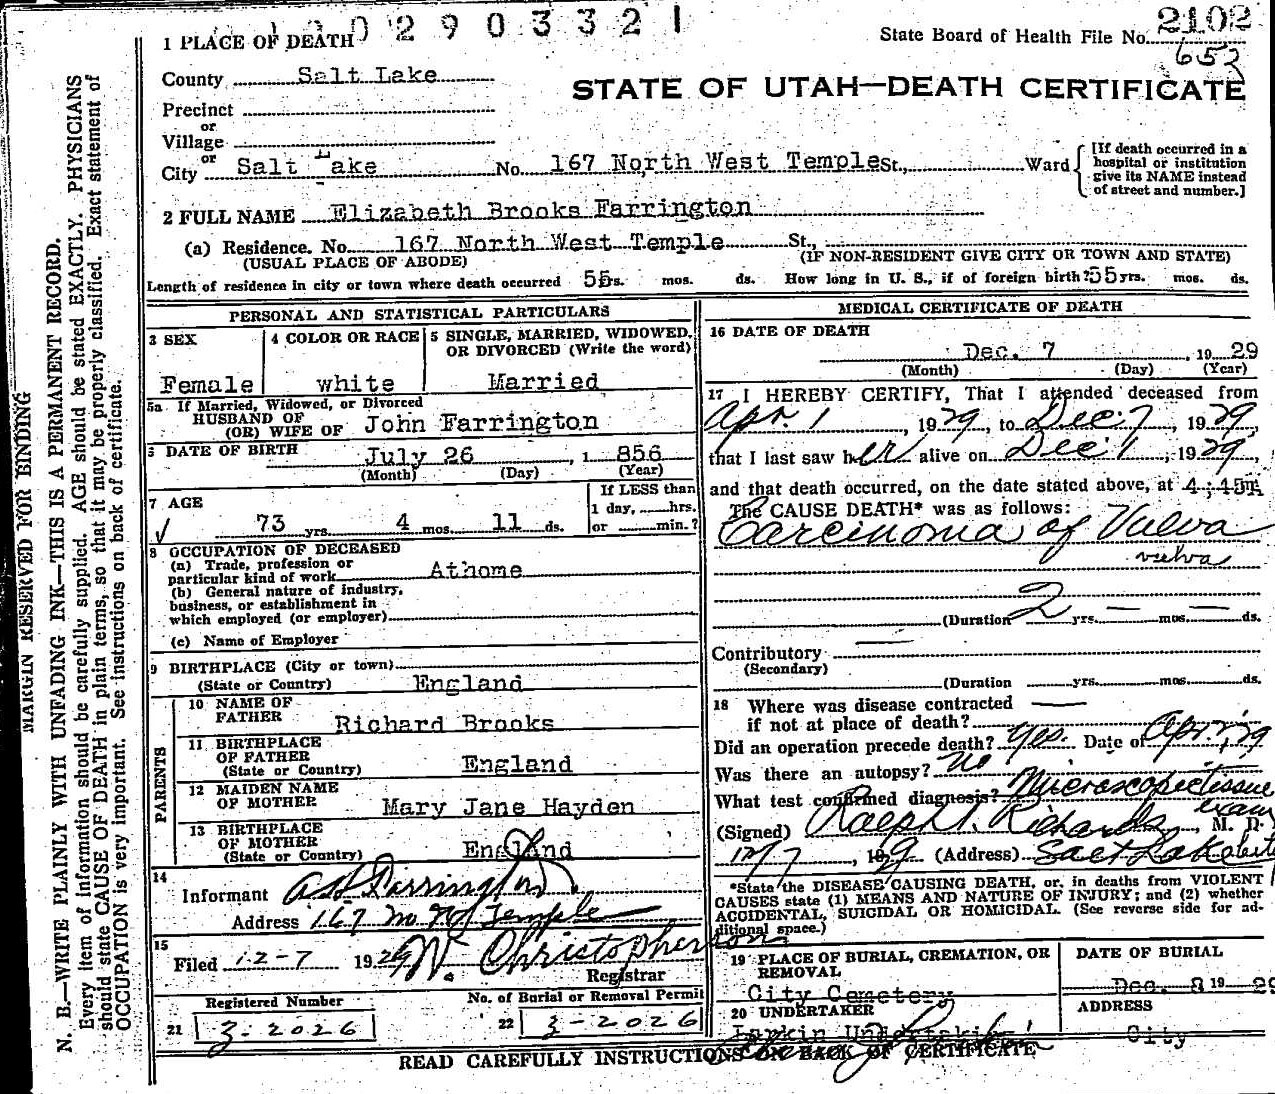 2903321
1 PLACE OF DEATH
State Board of Health File No. 2102
653
County Salt Lake
STATE OF UTAH—DEATH CERTIFICATE
Precinct
or
Village
or
City Salt Lake No. 167 North West Temple St., Ward
[If death occurred in a hospital or institution give its NAME instead of street and number.]
2 FULL NAME Elizabeth Brooks Farrington
(a) Residence. No. 167 North West Temple St.,
(USUAL PLACE OF ABODE) (IF NON-RESIDENT GIVE CITY OR TOWN AND STATE)
Length of residence in city or town where death occurred 55 yrs. mos. ds. How long in U. S., if of foreign birth? 55 yrs. mos. ds.
PERSONAL AND STATISTICAL PARTICULARS
3 SEX
Female
4 COLOR OR RACE
white
5 SINGLE, MARRIED, WIDOWED, OR DIVORCED (Write the word)
Married
5a If Married, Widowed, or Divorced
HUSBAND OF
(OR) WIFE OF John Farrington
6 DATE OF BIRTH July 26, 1856
(Month) (Day) (Year)
7 AGE
73 yrs. 4 mos. 11 ds.
If LESS than
1 day, hrs.
or min.?
8 OCCUPATION OF DECEASED
(a) Trade, profession or
particular kind of work Athome
(b) General nature of industry,
business, or establishment in
which employed (or employer)
(c) Name of Employer
9 BIRTHPLACE (City or town)
(State or Country) England
PARENTS
10 NAME OF
FATHER Richard Brooks
11 BIRTHPLACE
OF FATHER
(State or Country) England
12 MAIDEN NAME
OF MOTHER Mary Jane Hayden
13 BIRTHPLACE
OF MOTHER
(State or Country) England
14
Informant Farrington
Address 167 N. W. Temple
15
Filed 12-7 1929 W. Christopherson
Registrar
Registered Number
21 3-2026
No. of Burial or Removal Permit
22 3-2026
MEDICAL CERTIFICATE OF DEATH
16 DATE OF DEATH
Dec. 7, 1929
(Month) (Day) (Year)
17 I HEREBY CERTIFY, That I attended deceased from
Apr. 1, 1929, to Dec 7, 1929,
that I last saw her alive on Dec 1, 1929,
and that death occurred, on the date stated above, at 4:45
The CAUSE DEATH* was as follows:
Carcinoma of Vulva
vulva
(Duration 2 yrs. — mos. — ds.
Contributory —
(Secondary)
(Duration yrs. mos. ds.
18 Where was disease contracted
if not at place of death? —
Did an operation precede death? yes. Date of Apr. 1, 29
Was there an autopsy? No
What test confirmed diagnosis? Microscopic tissue
exam
(Signed) Ralph T. Richards, M. D.
12/7, 1929 (Address) Salt Lake City
*State the DISEASE CAUSING DEATH, or, in deaths from VIOLENT
CAUSES state (1) MEANS AND NATURE OF INJURY; and (2) whether
ACCIDENTAL, SUICIDAL OR HOMICIDAL. (See reverse side for ad-
ditional space.)
19 PLACE OF BURIAL, CREMATION, OR
REMOVAL
City Cemetery
DATE OF BURIAL
Dec. 8 1929
20 UNDERTAKER
Larkin
ADDRESS
City
READ CAREFULLY INSTRUCTIONS ON BACK OF CERTIFICATE
MARGIN RESERVED FOR BINDING
N. B.—WRITE PLAINLY WITH UNFADING INK—THIS IS A PERMANENT RECORD.
Every item of information should be carefully supplied. AGE should be stated EXACTLY. PHYSICIANS
should state CAUSE OF DEATH in plain terms, so that it may be properly classified. Exact statement of
OCCUPATION is very important. See instructions on back of certificate.